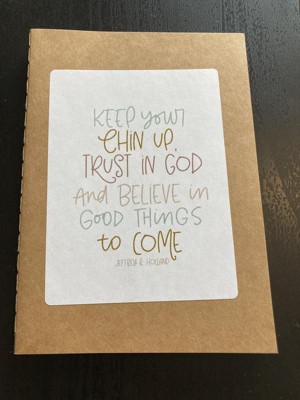 KEEP your
CHIN UP,
TRUST IN GOD
And BELIEVE in
GOOD THINGS
to COME
JEFFREY R. HOLLAND